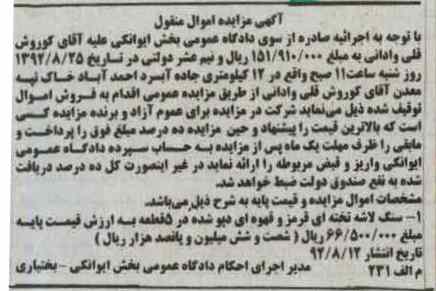 آگهی مزایده اموال منقول
با توجه به اجرائیه صادره از سوی دادگاه عمومی بخش ایوانکی علیه آقای کوروش
قلی وادانی به مبلغ ۱۵۱/۹۱۰/۰۰۰ ریال و نیم عشر دولتی در تاریخ ۱۳۹۲/۸/۲۵
روز شنبه ساعت۱۱ صبح واقع در ۱۲ کیلومتری جاده آبسرد احمد آباد خاک نپه
معدن آقای کوروش قلی وادانی از طریق مزایده عمومی اقدام به فروش اموال
توقیف شده ذیل می‌نماید شرکت در مزایده برای عموم آزاد و برنده مزایده کسی
است که بالاترین قیمت را پیشنهاد و حین مزایده ده درصد مبلغ فوق را پرداخت و
مابقی را ظرف مهلت یک ماه پس از مزایده به حساب سپرده دادگاه عمومی
ایوانکی واریز و قبض مربوطه را ارائه نماید در غیر اینصورت کل ده درصد دریافت
شده به نفع صندوق دولت ضبط خواهد شد.
مشخصات اموال مزایده و قیمت پایه به شرح ذیل می‌باشد.
۱- سنگ لاشه تخته ای قرمز و قهوه ای دپو شده در ۵قطعه به ارزش قیمت پایه
مبلغ ۶۶/۵۰۰/۰۰۰ ریال ( شصت و شش میلیون و پانصد هزار ریال )
تاریخ انتشار ۹۲/۸/۱۲
م الف ۲۳۱ مدیر اجرای احکام دادگاه عمومی بخش ایوانکی - بختیاری